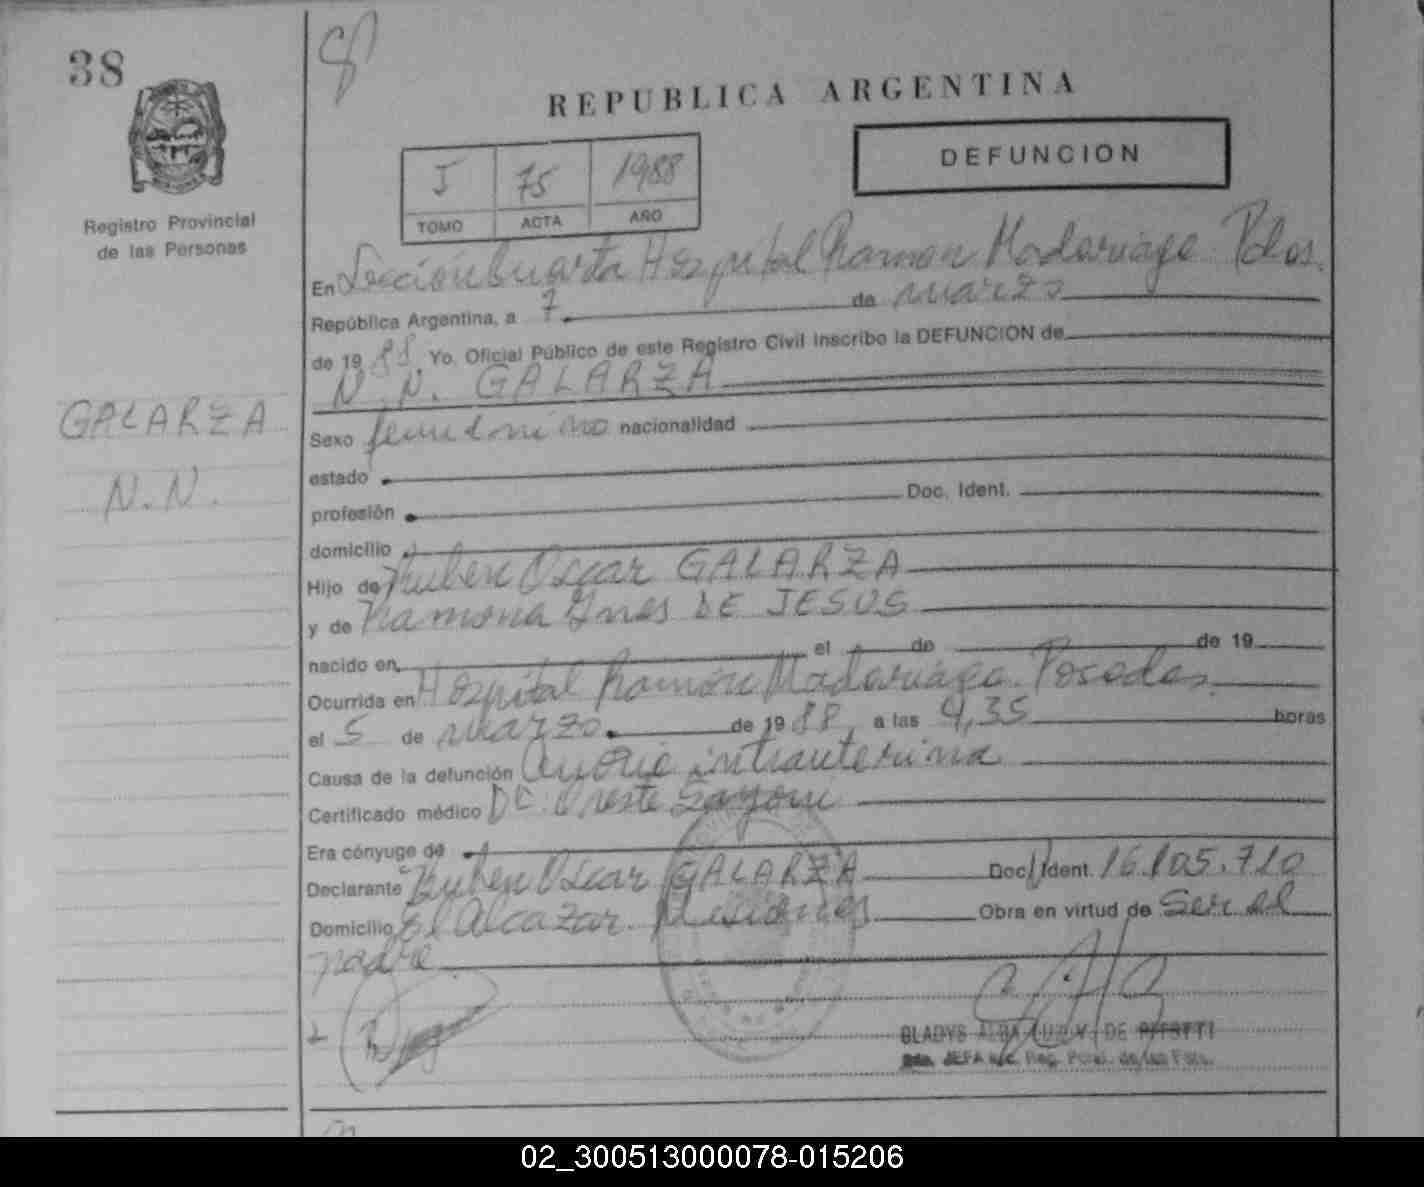 38
Registro Provincial
de las Personas
GALARZA
N.N.
REPUBLICA ARGENTINA
I 75 1988
TOMO ACTA AÑO
DEFUNCION
En Sección Cuarta Hospital Ramon Madariaga Pdas.
República Argentina, a 7 de marzo
de 19 88 Yo, Oficial Público de este Registro Civil inscribo la DEFUNCION de
N. N. GALARZA
Sexo femenino nacionalidad
estado
profesión Doc. Ident.
domicilio
Hijo de Ruben Oscar GALARZA
y de Ramona Ines DE JESUS
nacido en el de de 19
Ocurrida en Hospital Ramón Madariaga. Posadas.
el 5 de marzo. de 19 88 a las 4,35 horas
Causa de la defunción intrauterina
Certificado médico Dr. Oreste
Era cónyuge de
Declarante Ruben Oscar GALARZA Doc. Ident. 16.105.710
Domicilio El Alcazar Misiones Obra en virtud de Ser el
padre
GLADYS ALBA DE
JEFA
02_300513000078-015206